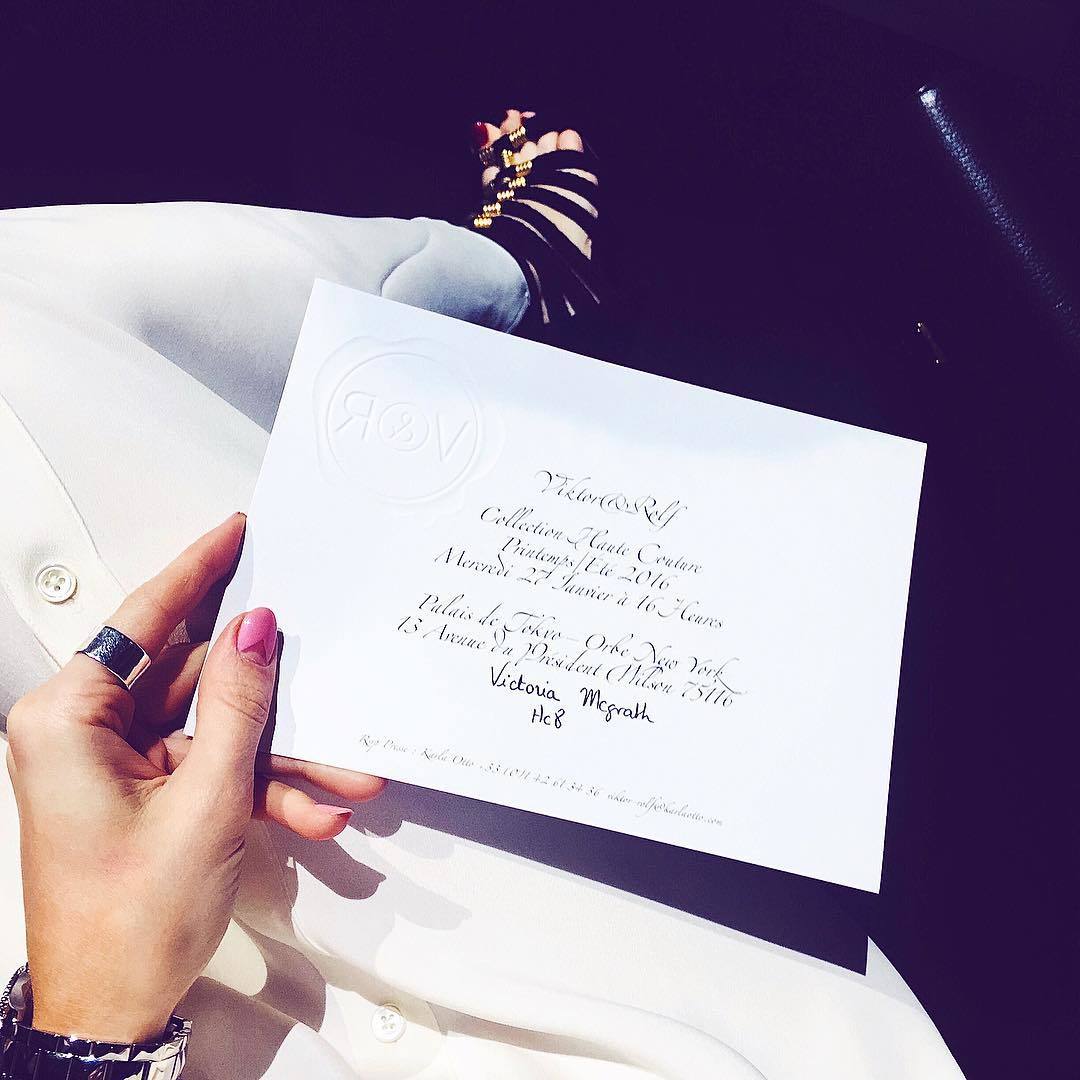 V&R
Viktor&Rolf
Collection Haute Couture
Printemps/Été 2016
Mercredi 27 Janvier à 16 Heures
Palais de Tokyo – Orbe New York
13 Avenue du Président Wilson 75116
Victoria Mcgrath
HcB
Rsvp Presse : Karla Otto + 33 (0)1 42 61 34 36 viktor-rolf@karlaotto.com